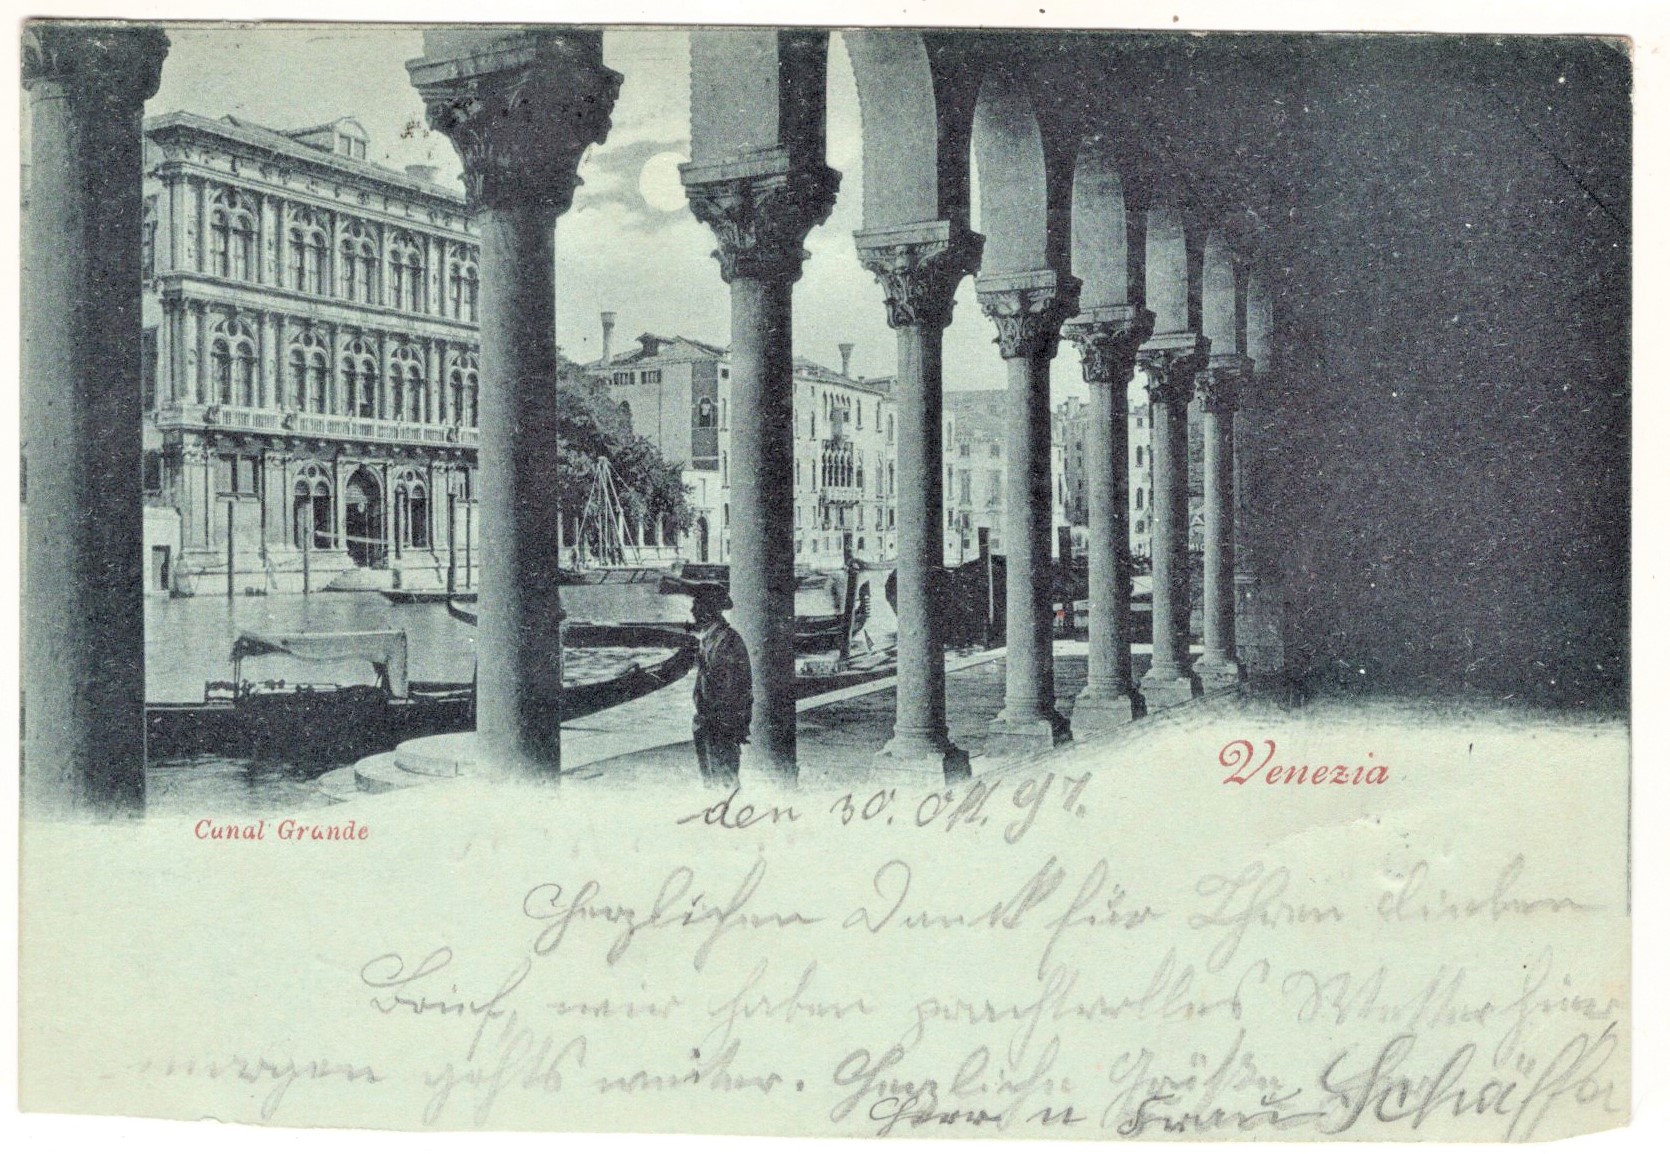 Venezia
Canal Grande
den 30. Okt. 97.
Herzlichen Dank für Ihren lieben
Brief, wir haben prachtvolles Wetter hier,
morgen gehts weiter. Herzliche Grüße
Herr u Frau Schäffer